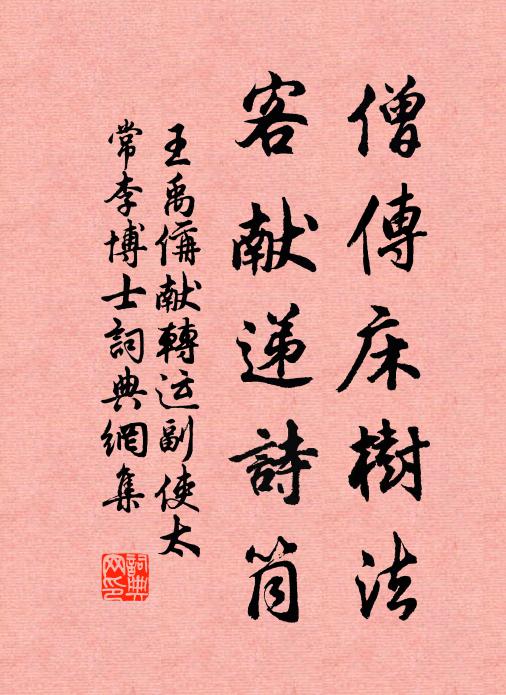 僧傳床樹法
客献遞詩筒
王禹偁献轉运副使太
常李博士詞典網集
詞典网印